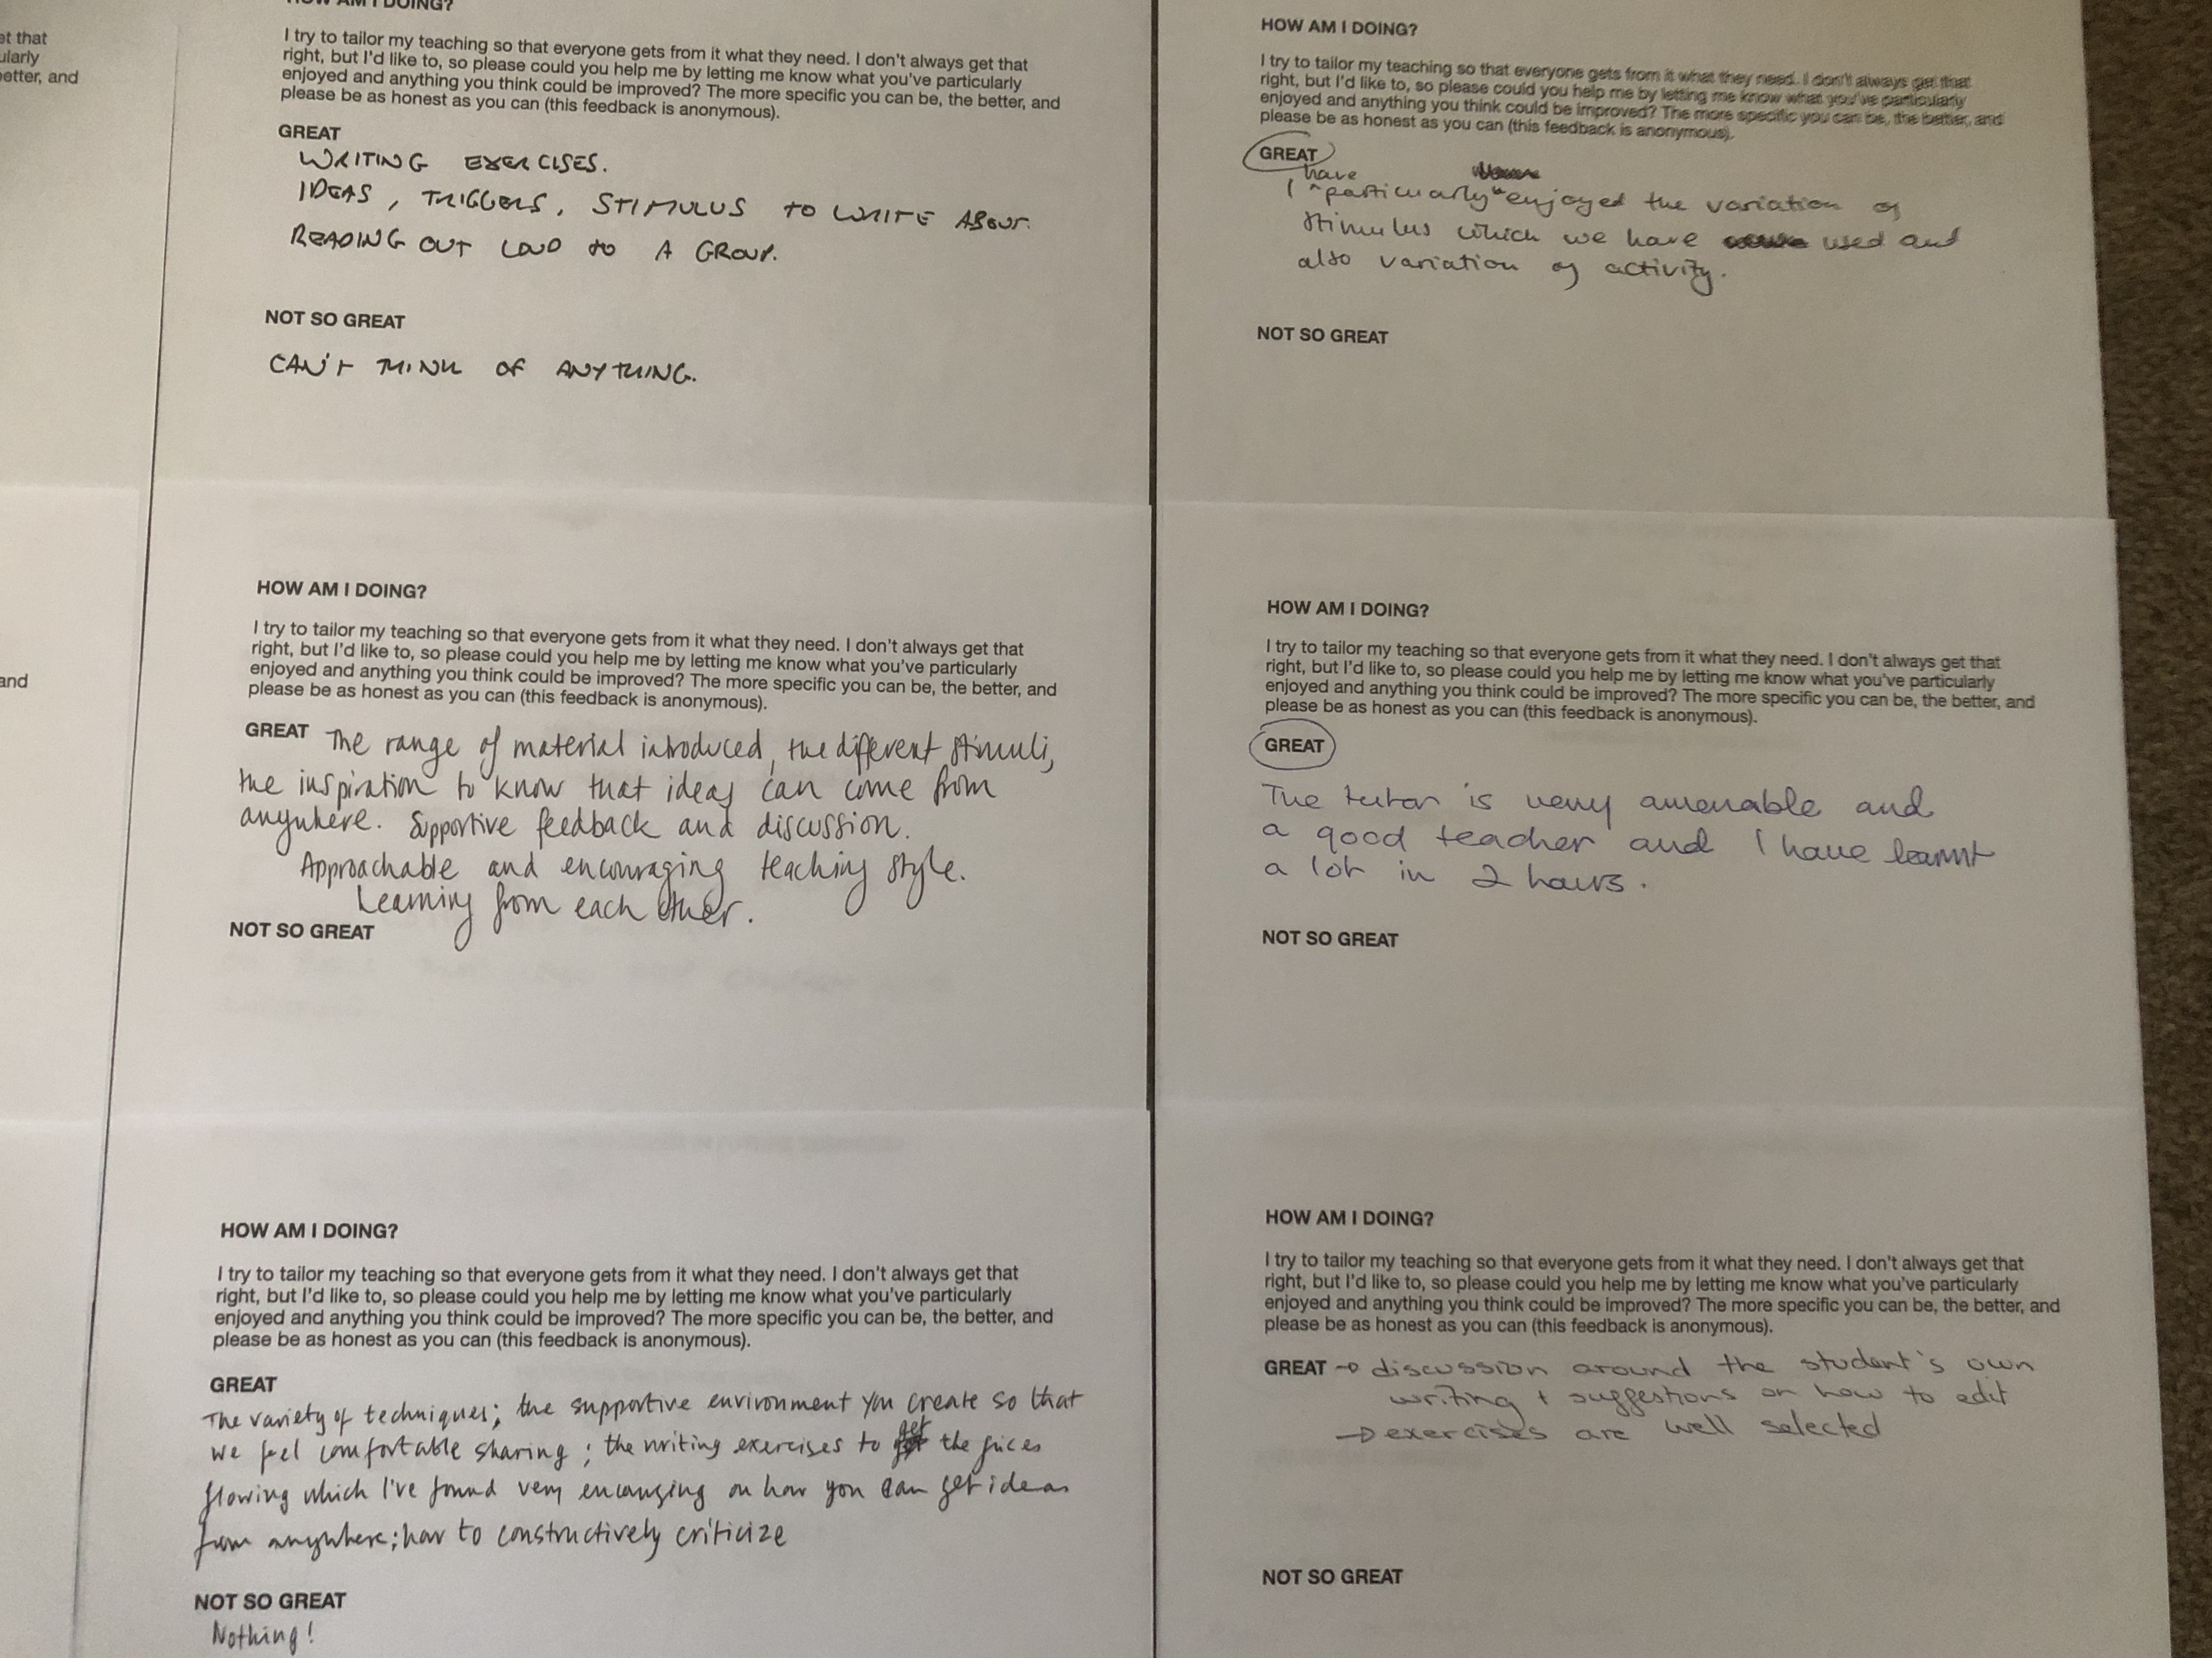 et that
ularly
better, and
and
HOW AM I DOING?
I try to tailor my teaching so that everyone gets from it what they need. I don't always get that
right, but I'd like to, so please could you help me by letting me know what you've particularly
enjoyed and anything you think could be improved? The more specific you can be, the better, and
please be as honest as you can (this feedback is anonymous).
GREAT
WRITING EXERCISES.
IDEAS, TRIGGERS, STIMULUS TO WRITE ABOUT.
READING OUT LOUD TO A GROUP.
NOT SO GREAT
CAN'T THINK OF ANYTHING.
HOW AM I DOING?
I try to tailor my teaching so that everyone gets from it what they need. I don't always get that
right, but I'd like to, so please could you help me by letting me know what you've particularly
enjoyed and anything you think could be improved? The more specific you can be, the better, and
please be as honest as you can (this feedback is anonymous).
GREAT
have
I ^ particularly enjoyed the variation of
stimulus which we have used and
also variation of activity.
NOT SO GREAT
HOW AM I DOING?
I try to tailor my teaching so that everyone gets from it what they need. I don't always get that
right, but I'd like to, so please could you help me by letting me know what you've particularly
enjoyed and anything you think could be improved? The more specific you can be, the better, and
please be as honest as you can (this feedback is anonymous).
GREAT The range of material introduced, the different stimuli,
the inspiration to know that ideas can come from
anywhere. Supportive feedback and discussion.
Approachable and encouraging teaching style.
Learning from each other.
NOT SO GREAT
HOW AM I DOING?
I try to tailor my teaching so that everyone gets from it what they need. I don't always get that
right, but I'd like to, so please could you help me by letting me know what you've particularly
enjoyed and anything you think could be improved? The more specific you can be, the better, and
please be as honest as you can (this feedback is anonymous).
GREAT
The tutor is very amenable and
a good teacher and I have learnt
a lot in 2 hours.
NOT SO GREAT
HOW AM I DOING?
I try to tailor my teaching so that everyone gets from it what they need. I don't always get that
right, but I'd like to, so please could you help me by letting me know what you've particularly
enjoyed and anything you think could be improved? The more specific you can be, the better, and
please be as honest as you can (this feedback is anonymous).
GREAT
The variety of techniques; the supportive environment you create so that
we feel comfortable sharing; the writing exercises to get the juices
flowing which I've found very encouraging on how you can get ideas
from anywhere; how to constructively criticize
NOT SO GREAT
Nothing!
HOW AM I DOING?
I try to tailor my teaching so that everyone gets from it what they need. I don't always get that
right, but I'd like to, so please could you help me by letting me know what you've particularly
enjoyed and anything you think could be improved? The more specific you can be, the better, and
please be as honest as you can (this feedback is anonymous).
GREAT → discussion around the student's own
writing + suggestions on how to edit
→ exercises are well selected
NOT SO GREAT